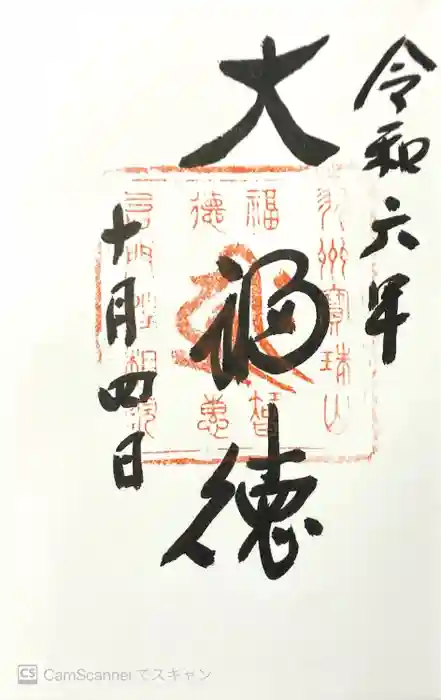 令和六年
大福徳
十月四日
州寶珠山
福智
CS CamScannerでスキャン